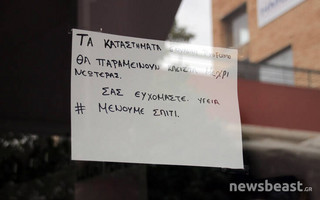 ΤΑ ΚΑΤΑΣΤΗΜΑΤΑ
ΘΑ ΠΑΡΑΜΕΙΝΟΥΝ
ΝΕΩΤΕΡΑΣ.
ΣΑΣ ΕΥΧΟΜΑΣΤΕ ΥΓΕΙΑ
# ΜΕΝΟΥΜΕ ΣΠΙΤΙ.
newsbeast.gr